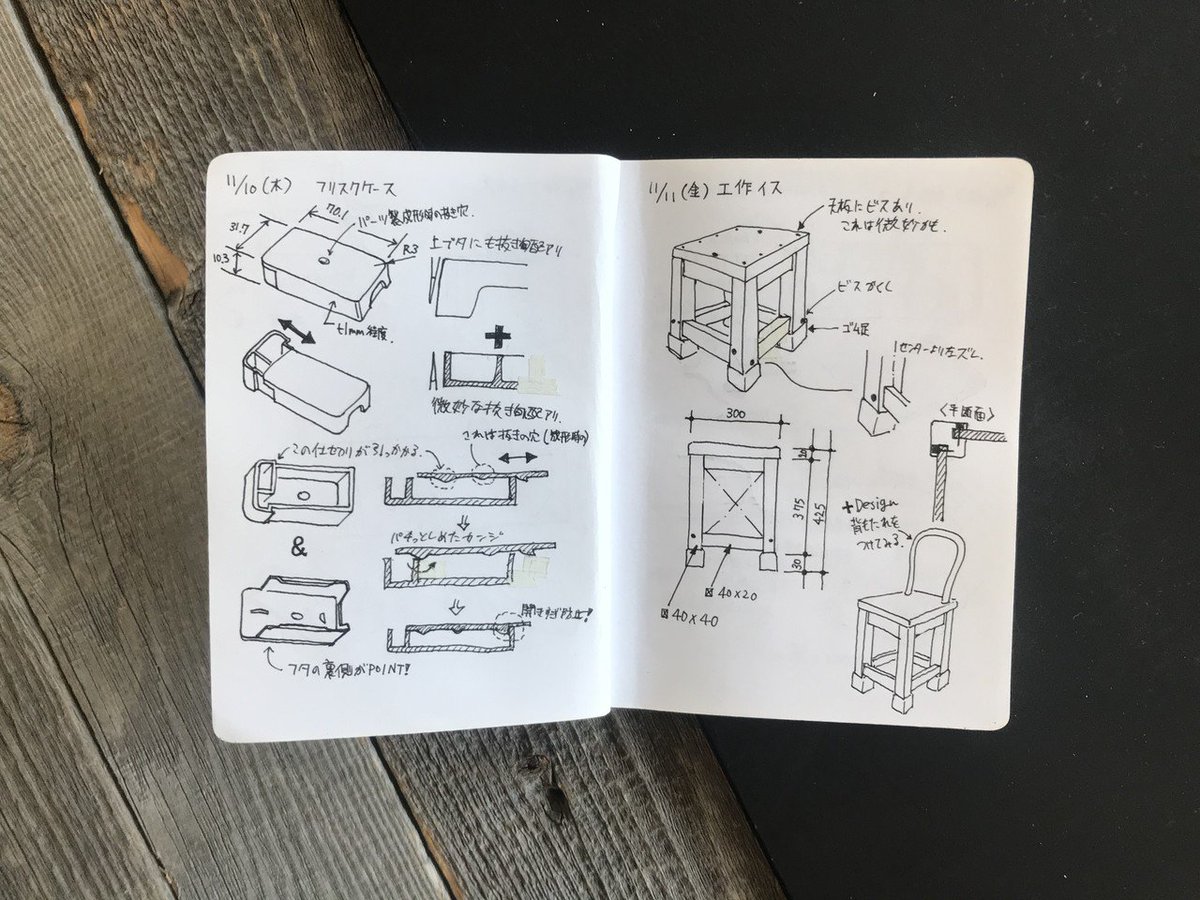 11/10(木) フリスクケース
70.1
31.7
10.3
R3
パーツ製成形時の抜き穴.
t1mm程度.
上ブタにも抜き勾配アリ
+
微妙な抜き勾配アリ.
これは抜きの穴(成形時の)
この仕切りが引っかかる.
&
パチッとしめたカンジ
開きすぎ防止!
フタの裏側がPOINT!
11/11(金) 工作イス
天板にビスあり.
これは微妙かも.
ビスかくし
ゴム足
センターより左ズレ.
<平断面>
300
375
425
30
40×20
40×40
+Design
背もたれを
つけてみる.